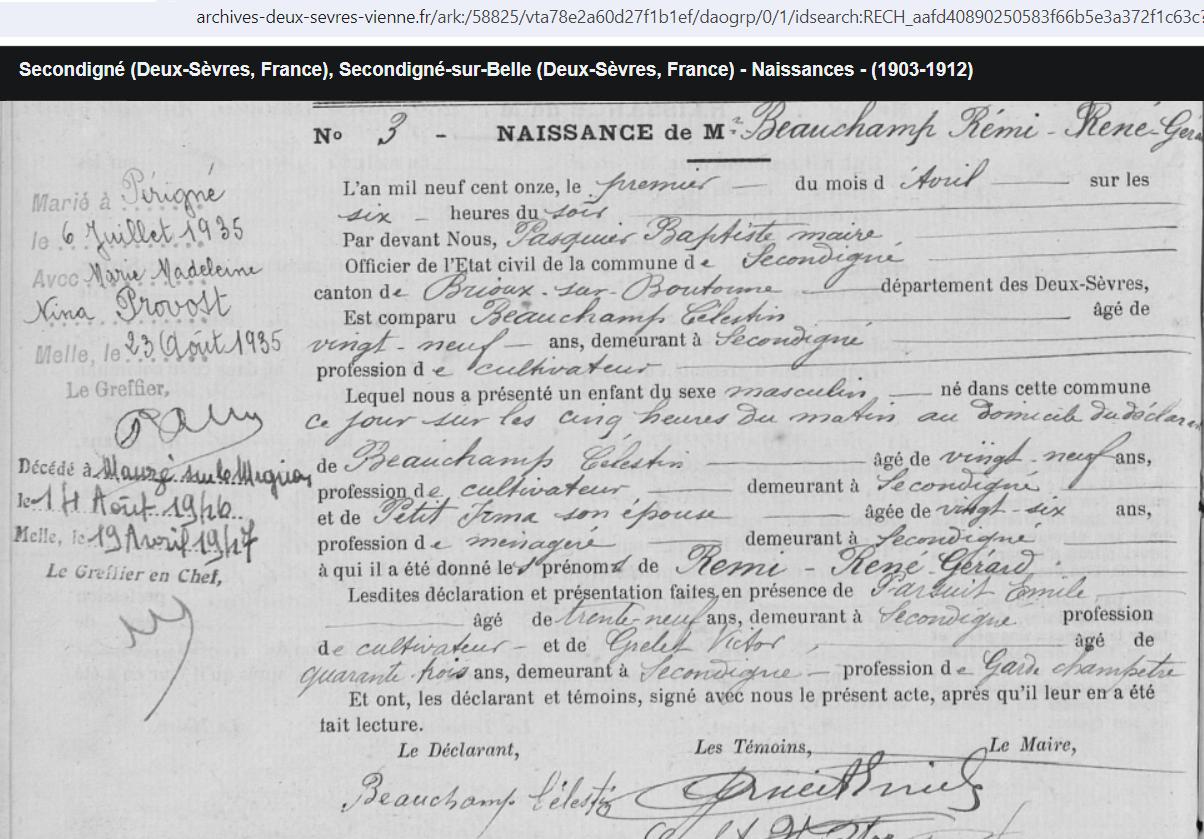 archives-deux-sevres-vienne.fr/ark:/58825/vta78e2a60d27f1b1ef/daogrp/0/1/idsearch:RECH_aafd40890250583f66b5e3a372f1c63c?
Secondigné (Deux-Sèvres, France), Secondigné-sur-Belle (Deux-Sèvres, France) - Naissances - (1903-1912)
No 3 - NAISSANCE de Mr Beauchamp Rémi - René-Gér
Marié à Périgné
le 6 Juillet 1935
Avec Marie Madeleine
Nina Provost
Melle, le 23 Août 1935
Le Greffier,
Décédé à Mauzé sur le Mignon
le 14 Août 1946
Melle, le 19 Avril 1947
Le Greffier en Chef,
L'an mil neuf cent onze, le premier du mois d Avril sur les
six heures du soir
Par devant Nous, Pasquier Baptiste maire
Officier de l'Etat civil de la commune de Secondigné
canton de Brioux-sur-Boutonne département des Deux-Sèvres,
Est comparu Beauchamp Célestin âgé de
vingt-neuf ans, demeurant à Secondigné
profession de cultivateur
Lequel nous a présenté un enfant du sexe masculin né dans cette commune
ce jour sur les cinq heures du matin au domicile du déclaran
de Beauchamp Célestin âgé de vingt-neuf ans,
profession de cultivateur demeurant à Secondigné
et de Petit Irma son épouse âgée de vingt-six ans,
profession de ménagère demeurant à Secondigné
à qui il a été donné les prénoms de Remi - René-Gérard
Lesdites déclaration et présentation faites en présence de Emile
âgé de trente-neuf ans, demeurant à Secondigné profession
de cultivateur - et de Grelet Victor âgé de
quarante trois ans, demeurant à Secondigné profession de Garde champêtre
Et ont, les déclarant et témoins, signé avec nous le présent acte, après qu'il leur en a été
fait lecture.
Le Déclarant, Les Témoins, Le Maire,
Beauchamp Célestin